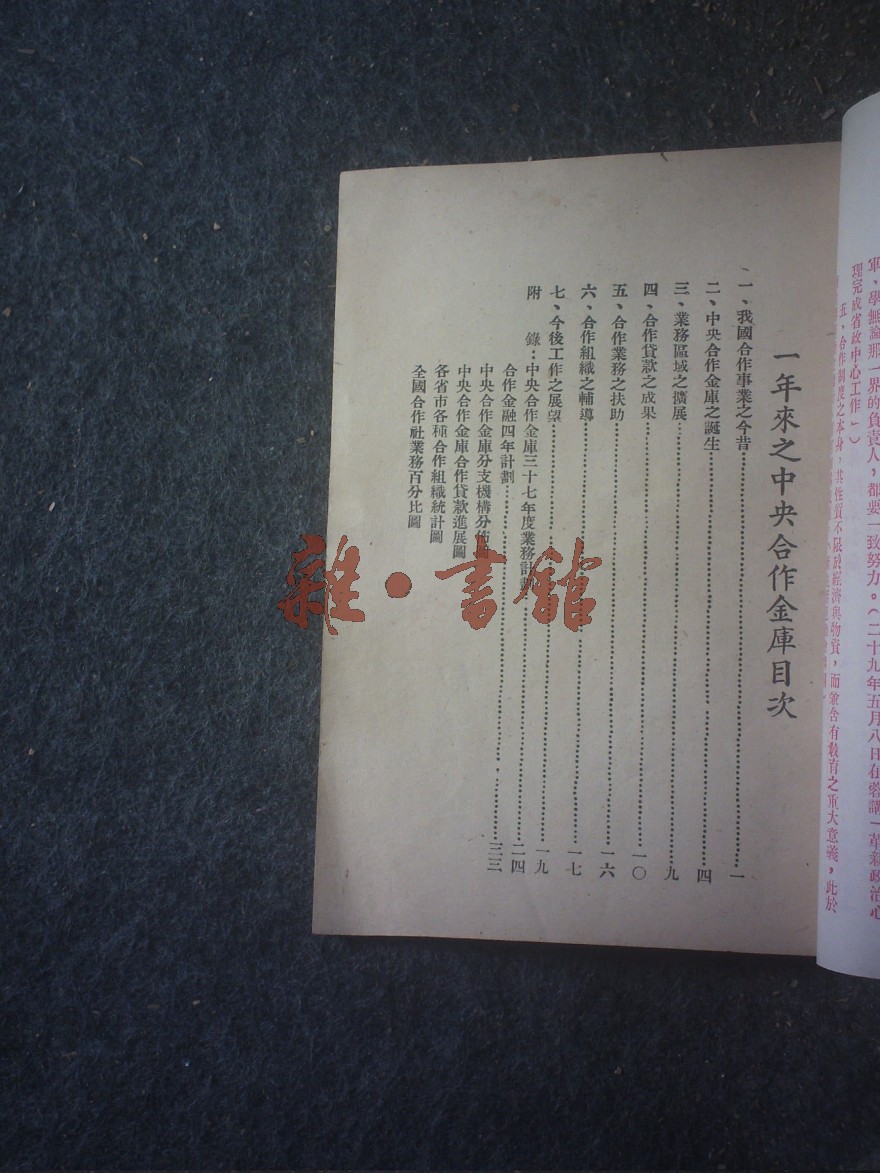 軍、學無論那一界的負責人，都要一致努力。（二十九年五月八日在蓉講「革新政治心
理完成省政中心工作」）
五、合作制度之本身，其性質不限於經濟與物資，而兼含有教育之重大意義，此於
一年來之中央合作金庫目次
一、我國合作事業之今昔……一
二、中央合作金庫之誕生……四
三、業務區域之擴展……九
四、合作貸款之成果……一〇
五、合作業務之扶助……一六
六、合作組織之輔導……一七
七、今後工作之展望……一九
附　錄：中央合作金庫三十七年度業務計劃……二四
合作金融四年計劃……三三
中央合作金庫分支機構分佈圖
中央合作金庫合作貸款進展圖
各省市各種合作組織統計圖
全國合作社業務百分比圖
雜·書館